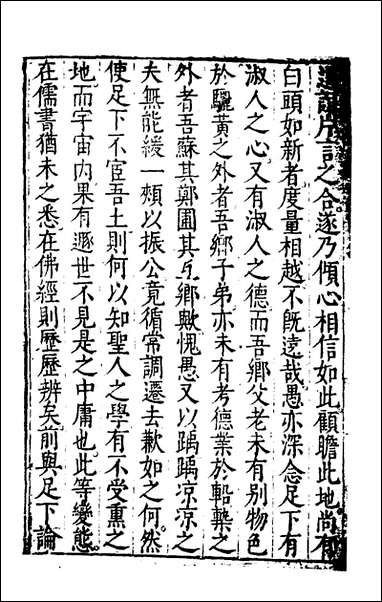 片言之合遂乃傾心相信如此顧瞻此地尚有
白頭如新者度量相越不旣遠哉愚亦深念足下有
淑人之心又有淑人之德而吾鄉父老未有别物色
於驪黃之外者吾鄉子弟亦未有考德業於軺槷之
外者吾蘇其鄭圃其互鄉歟愧愚又以踽踽凉凉之
夫無能緩一頰以振公竟循常調遷去歉如之何然
使足下不宦吾土則何以知聖人之學有不受熏之
地而宇宙内果有遯世不見是之中庸也此等變態
在儒書猶未之悉在佛經則歷歷辨矣前與足下論